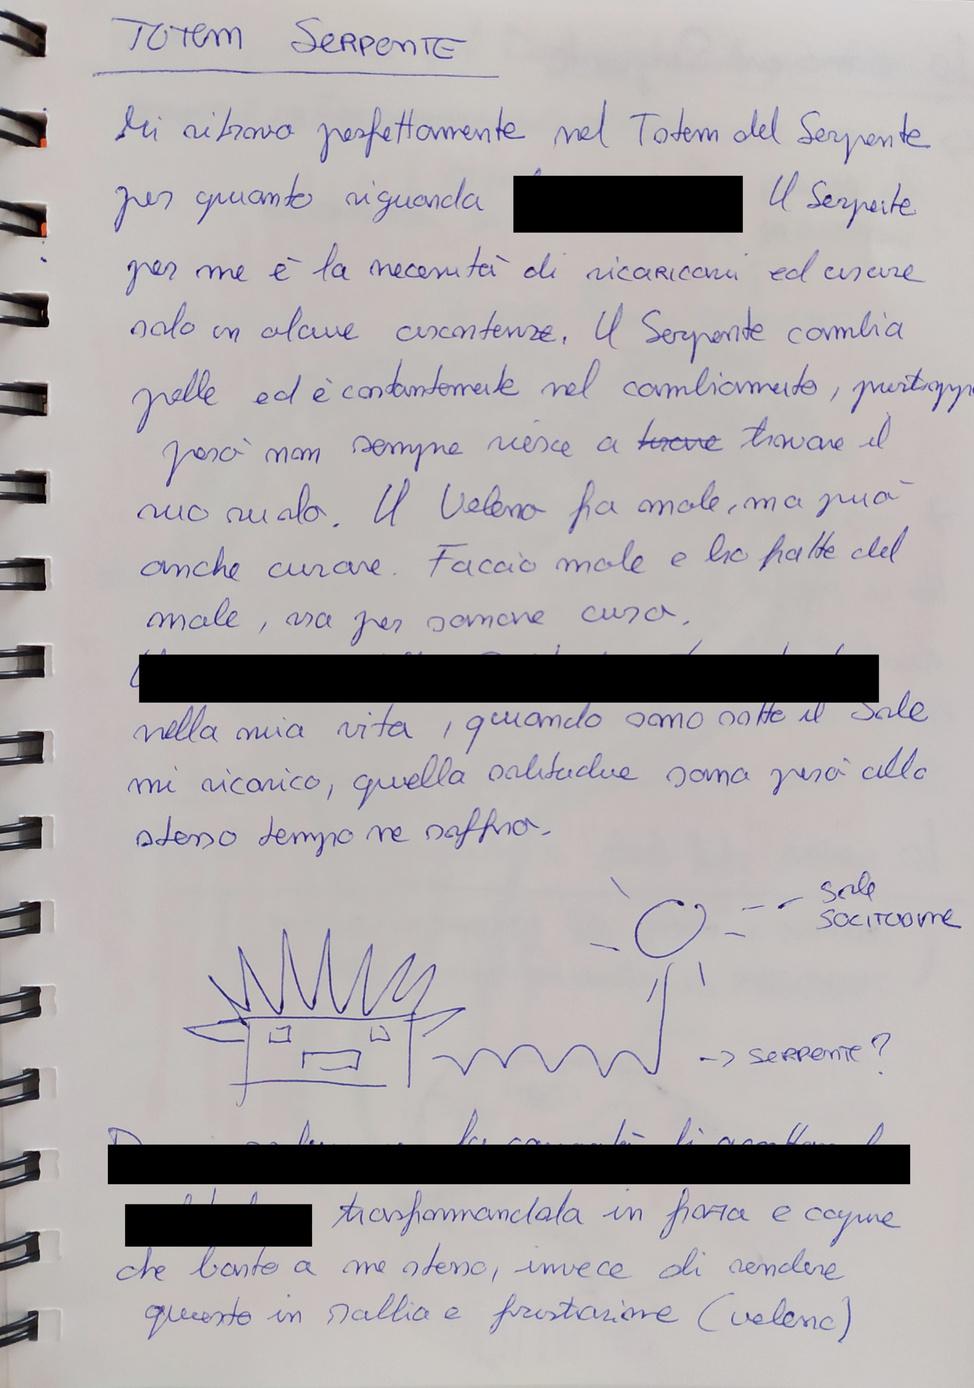 TOTEM SERPENTE
Mi ritrovo perfettamente nel Totem del Serpente
per quanto riguarda Il Serpente
per me è la necessità di ricaricarsi ed essere
solo in alcune circostanze. Il Serpente cambia
pelle ed è costantemente nel cambiamento, purtroppo
però non sempre riesce a trovare il
suo ruolo. Il Veleno fa male, ma può
anche curare. Faccio male e ho fatto del
male, ma per sono cura.
nella mia vita, quando sono sotto il Sole
mi ricarico, quella solitudine sana però allo
stesso tempo ne soffro.
SOLE
SOLITUDINE
-> SERPENTE?
trasformandola in forza e capire
che basto a me stesso, invece di rendere
questo in rabbia e frustrazione (veleno)